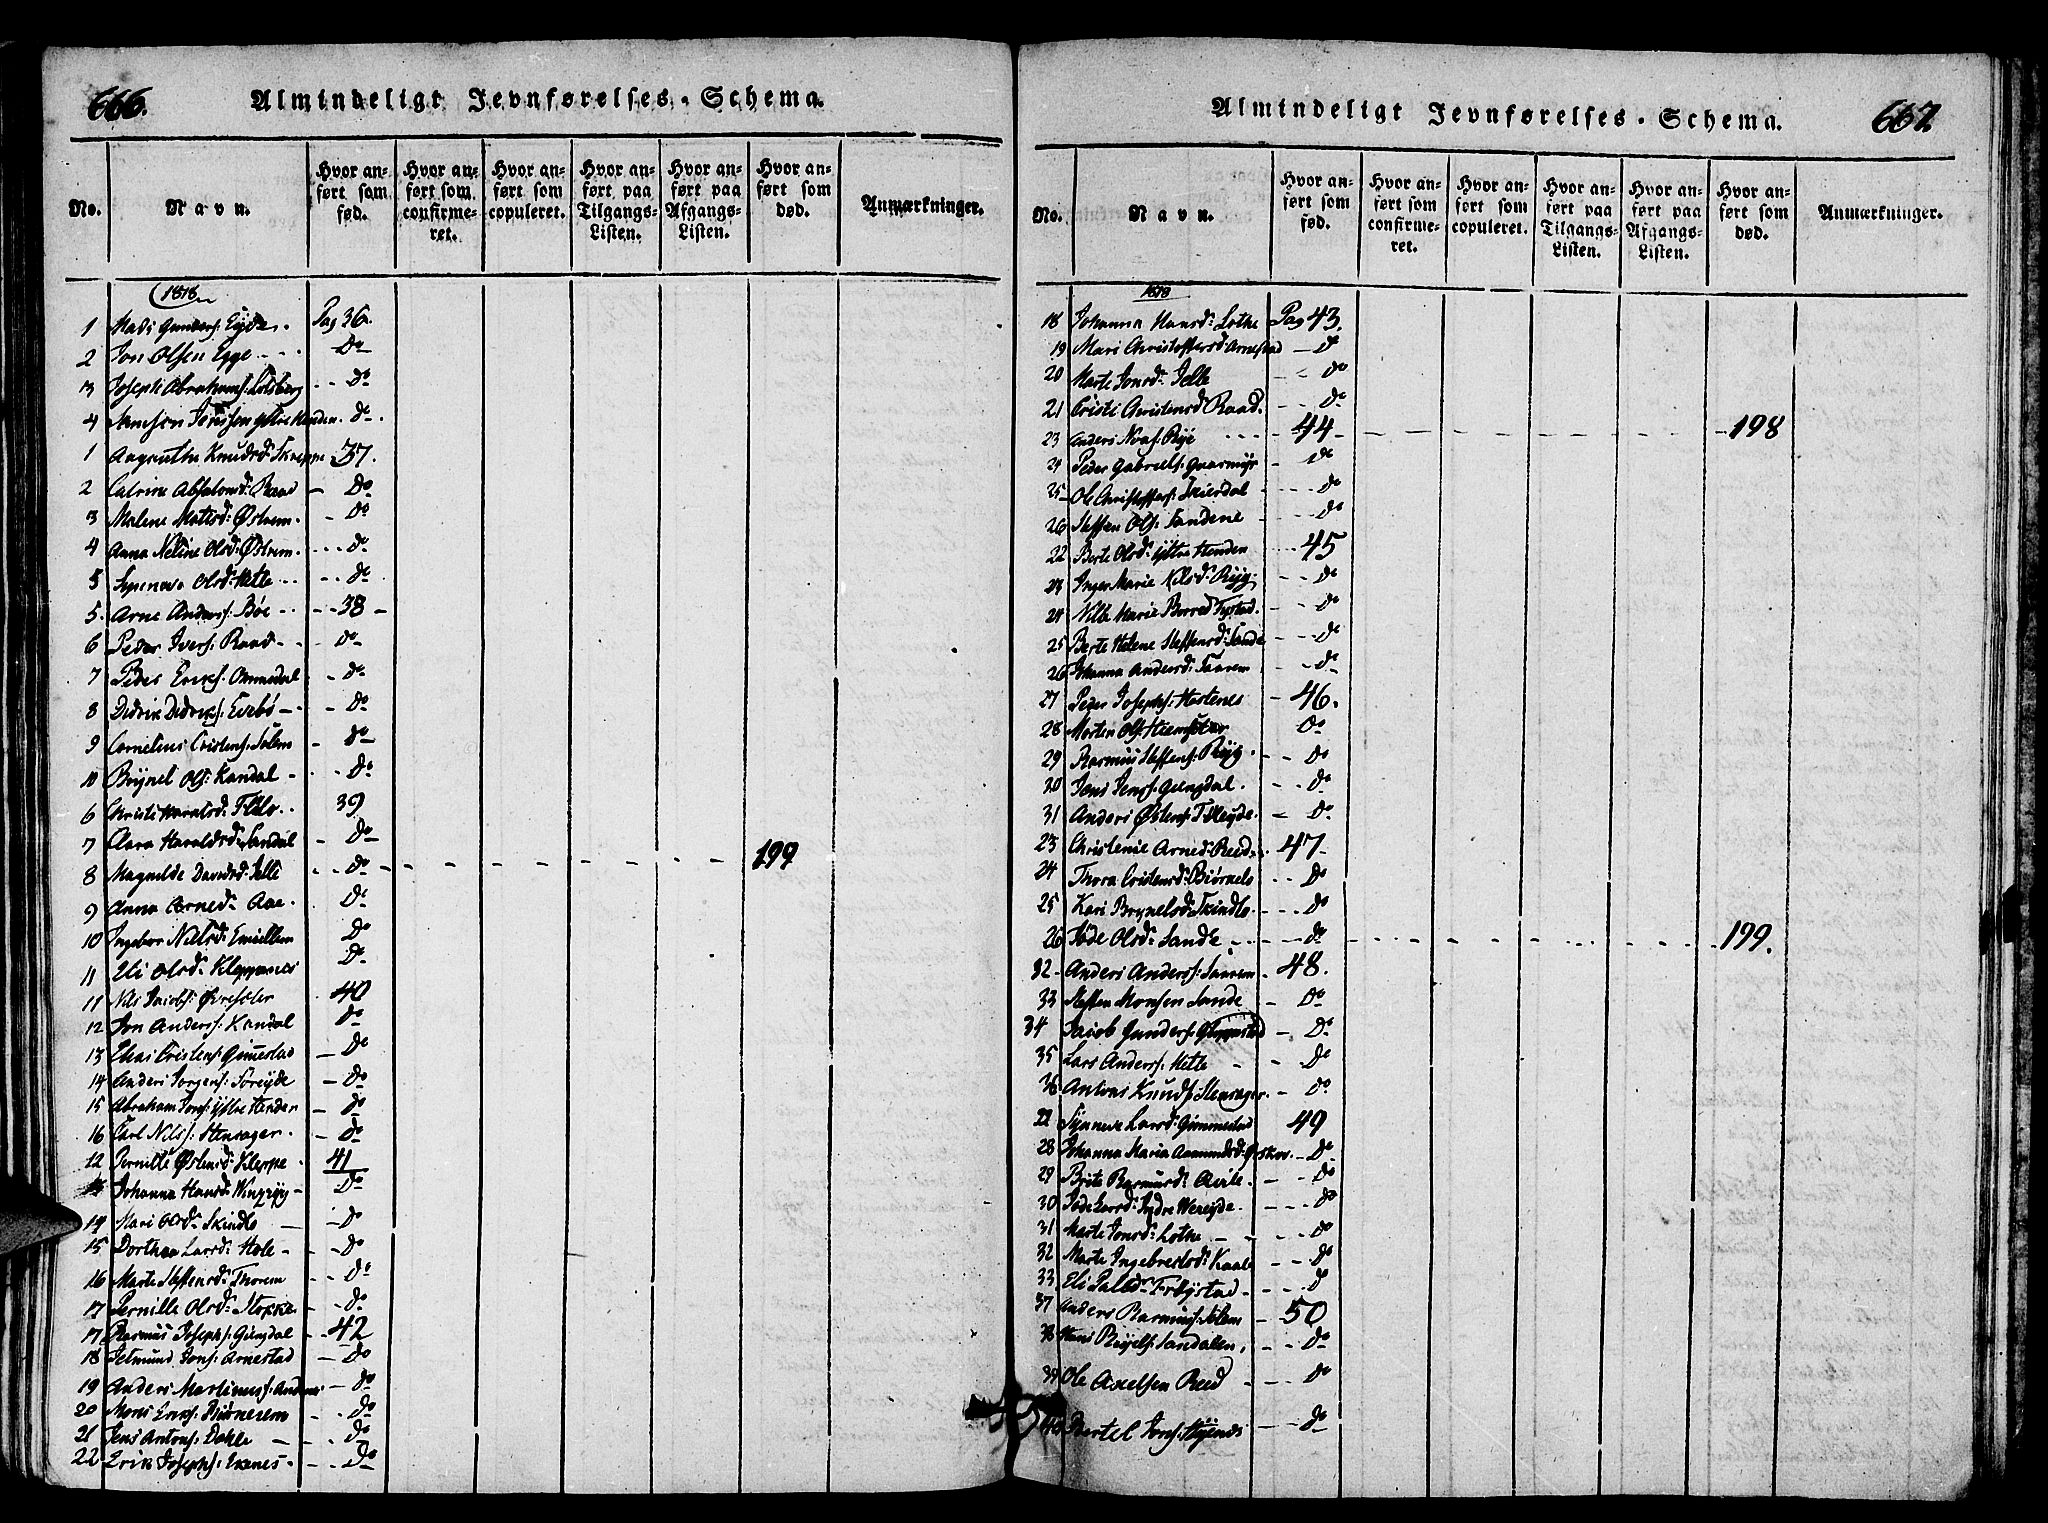 666.
Almindeligt Jevnførelses-Schema.
No. Navn. Hvor anført som fød. Hvor anført som confirmeret. Hvor anført som copuleret. Hvor anført paa Tilgangs-Listen. Hvor anført paa Afgangs-Listen. Hvor anført som død. Anmærkninger.
1818
1 Mads Gunders: Eyde. Pag 36.
2 Jon Olsen Egge Do
3 Joseph Abrahams: Lotsberg Do
4 Samson Jonssen ytre Henden Do
1 Knudsd: Skreppe 37.
2 Catrine Absalonsd: Raad Do
3 Malene Matisd: Østrem Do
4 Anna Neline Olsd: Østrem Do
5 Olsd: Hetle Do
5. Arne Anders: Böe 38
6 Peder Ivers: Raad Do
7 Peder Eriks: Ommedal Do
8 Didrik Didriks: Evebö Do
9 Cornelius Cristens: Solem Do
10 Brynel Ols: Kandal Do
6 Christi Haraldsd: Flölo 39
7 Clara Haraldsd: Sandal Do
8 Magnilde Davidsd: Jelle Do 199
9 Anna Arned: Aae. Do
10 Ingebor Nilsd: Do
11 Eli Olsd: Kleppenes Do
11 Nils Jacobs: 40
12 Jon Anders: Kandal Do
13 Elias Cristens: Gimestad Do
14 Anders Jorgens: Söreyde Do
15 Abraham Jons: ytre Henden Do
16 Carl Nils: Stensager. Do
12 Pernille Østensd: Kleppe 41
13 Johanna Hansd: Do
14 Mari Olsd: Skindlo Do
15 Dorthea Larsd: Hole Do
16 Marte Steffensd: Thorem Do
17 Pernille Olsd: Stokke Do
17 Rasmus Josephs: Giengdal 42
18 Setmund Jons: Arnestad Do
19 Anders Martinus: Andenes Do
20 Mons Eriks: Do
21 Jens Antons: Dahle Do
22 Erik Josephs: Ekenes Do
667
Almindeligt Jevnførelses-Schema.
No. Navn. Hvor anført som fød. Hvor anført som confirmeret. Hvor anført som copuleret. Hvor anført paa Tilgangs-Listen. Hvor anført paa Afgangs-Listen. Hvor anført som død. Anmærkninger.
1818
18 Johanna Hansd: Lothe Pag 43.
19 Mari Christoffersd: Arnestad Do
20 Marte Jonsd: Jelle Do
21 Cristi Cristensd Raad. Do
23 Anders Rye 44 198
24 Peder Gabriels: Do
25 Ole Christoffers: Do
26 Steffen Ols: Sandene Do
22 Berte Olsd: ytre Henden 45
23 Inger Marie Nilsd: Ryg Do
24 Nille Marie Do
25 Berte Helene Steffensd: Sande Do
26 Johanna Andersd: Saarem Do
27 Peder Josephs: Hestenes 46.
28 Morten Ols: Do
29 Rasmus Steffens: Ryg Do
30 Jens Jens: Giengdal. Do
31 Anders Østens: Do
23 Christense Arned: Reed 47
24 Thora Cristensd: Do
25 Kari Brynelsd: Skindlo Do
26 Jöde Olsd: Sande Do 199.
32 Anders Anders: Saarem 48.
33 Steffen Monsen Sande Do
34 Jacob Gunders: Do
35 Lars Anders: Hetle Do
36 Antoni Knuds: Stensager Do
22 Synneve Larsd: Gimmestad 49
28 Johanna Maria Aamundsd: Do
29 Brite Rasmusd: Do
30 Jöde Larsd: Indre Wereyde. Do
31 Marte Jonsd: Lothe Do
32 Marte Ingebretsd: Do
33 Eli Do
37 Anders Rasmus: Solem 50
38 Hans Sandalen Do
39 Ole Axelsen Reed Do
40 Bertel Jons: Do